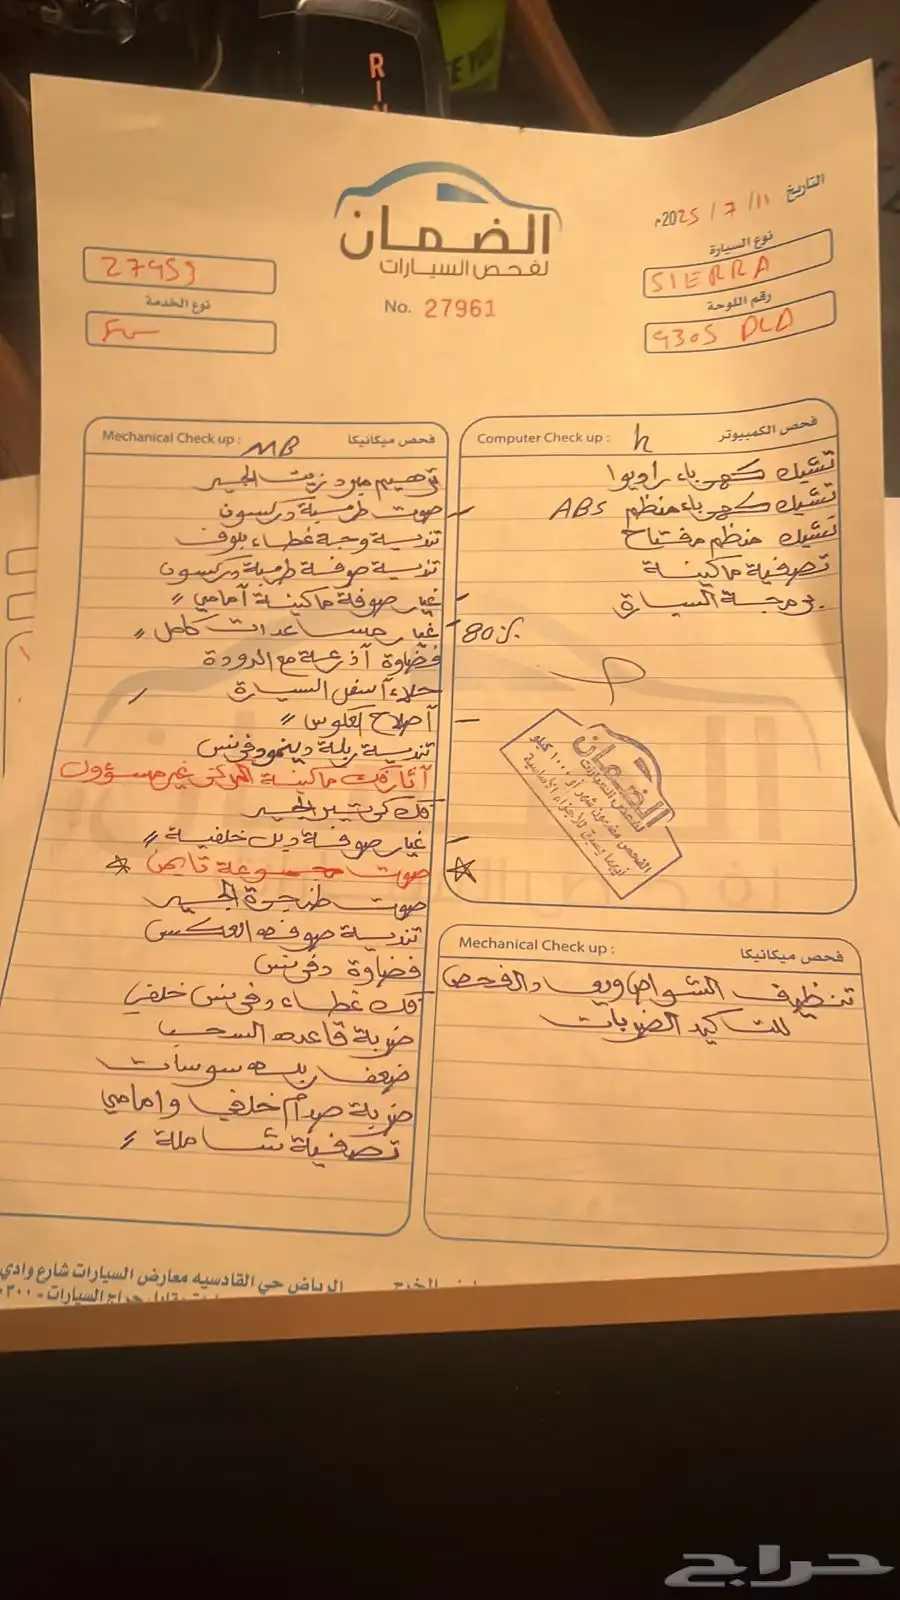 RIN
E YOU
التاريخ 11 / 7 / 2025م
الضمان
لفحص السيارات
No. 27961
نوع السيارة
SIERRA
رقم اللوحة
9305 DLD
27959
نوع الخدمة
فحص ميكانيكا Mechanical Check up : MB
ترهيم مبرد زيت الجير
صوت طرمبة دركسون
تندية وجبة غطاء بلوف
تندية صوفة طرمبة دركسون
غيار صوفة ماكينة أمامي //
غيار مساعدات كامل // 80%
فضاوة أذرعة مع الدودة
جلاء أسفل السيارة
أصلاح العلوس //
تندية ربلة دينمو دفرنس
آثار فك ماكينة المركز غير مسؤول
فك كرتير الجير
غيار صوفة دبل خلفية //
صوت مجموعة تايمن
صوت طنجرة الجير
تندية صوفه العكس
فضاوة دفرنس
فك غطاء دفرنس خلفي
ضربة قاعده السحب
ضعف ربله سوسات
ضربة صدام خلفي وامامي
تصفية شاملة //
فحص الكمبيوتر Computer Check up : h
تشيك كهرباء راديوا
تشيك كهرباء منظم ABS
تشيك منظم مفتاح
تصفية ماكينة
برمجة السيارة
الضمان
لفحص السيارات
الفحص مضمون شهر أو ١٠٠٠ كيلو
أيهما يسبق للأجزاء الأساسية
فحص ميكانيكا Mechanical Check up :
تنظيف الشواص ويعاد الفحص
للتاكيد الضربات
الرياض حي القادسيه معارض السيارات شارع وادي
مقابل حراج السيارات -
حراج